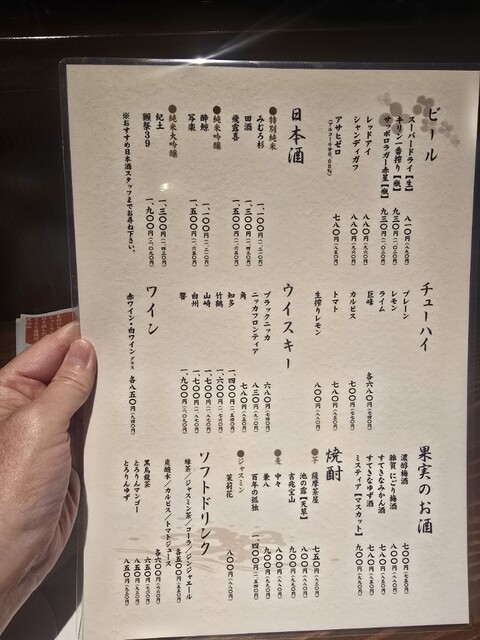 ビール
スーパードライ【生】 八一〇円
キリン一番搾り【瓶】 九三〇円
サッポロラガー赤星【瓶】 九三〇円
レッドアイ 八八〇円
シャンディガフ 八八〇円
アサヒゼロ 七八〇円
日本酒
●特別純米
みむろ杉 一、一〇〇円
田酒 一、三〇〇円
飛露喜 一、五〇〇円
●純米吟醸
酔鯨 一、一〇〇円
写楽 一、五〇〇円
●純米大吟醸
紀土 一、三〇〇円
獺祭39 一、九〇〇円
※おすすめ日本酒スタッフまでお尋ね下さい。
チューハイ
プレーン
レモン
ライム 各六八〇円
巨峰
カルピス 七〇〇円
トマト 七八〇円
生搾りレモン 八〇〇円
ウイスキー
ブラックニッカ 六八〇円
ニッカフロンティア 八三〇円
角 七八〇円
知多 一、四〇〇円
竹鶴 一、六〇〇円
山崎 一、七〇〇円
白州 一、七〇〇円
響 一、九〇〇円
ワイン
赤ワイン・白ワイン グラス 各八五〇円
果実のお酒
濃醇梅酒 七〇〇円
雑賀 にごり梅酒 八〇〇円
すてきなみかん酒 七八〇円
すてきなゆず酒 七八〇円
ミスティア【マスカット】 九〇〇円
焼酎
●芋 薩摩茶屋 七五〇円
池の露【天草】 八〇〇円
吉兆宝山 九〇〇円
●麦 中々 八〇〇円
兼八 九〇〇円
百年の孤独 一、四〇〇円
●ジャスミン
茉莉花 八〇〇円
ソフトドリンク
緑茶／ジャスミン茶／コーラ／ジンジャエール 各五〇〇円
炭酸水／カルピス／トマトジュース 各六〇〇円
黒烏龍茶 六五〇円
とろりんマンゴー 八五〇円
とろりんゆず 八五〇円